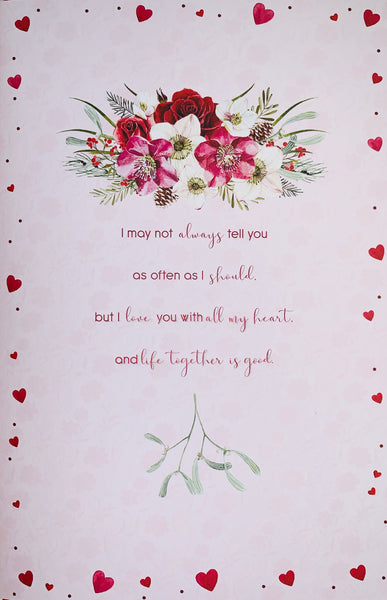 I may not always tell you
as often as I should,
but I love you with all my heart,
and life together is good.